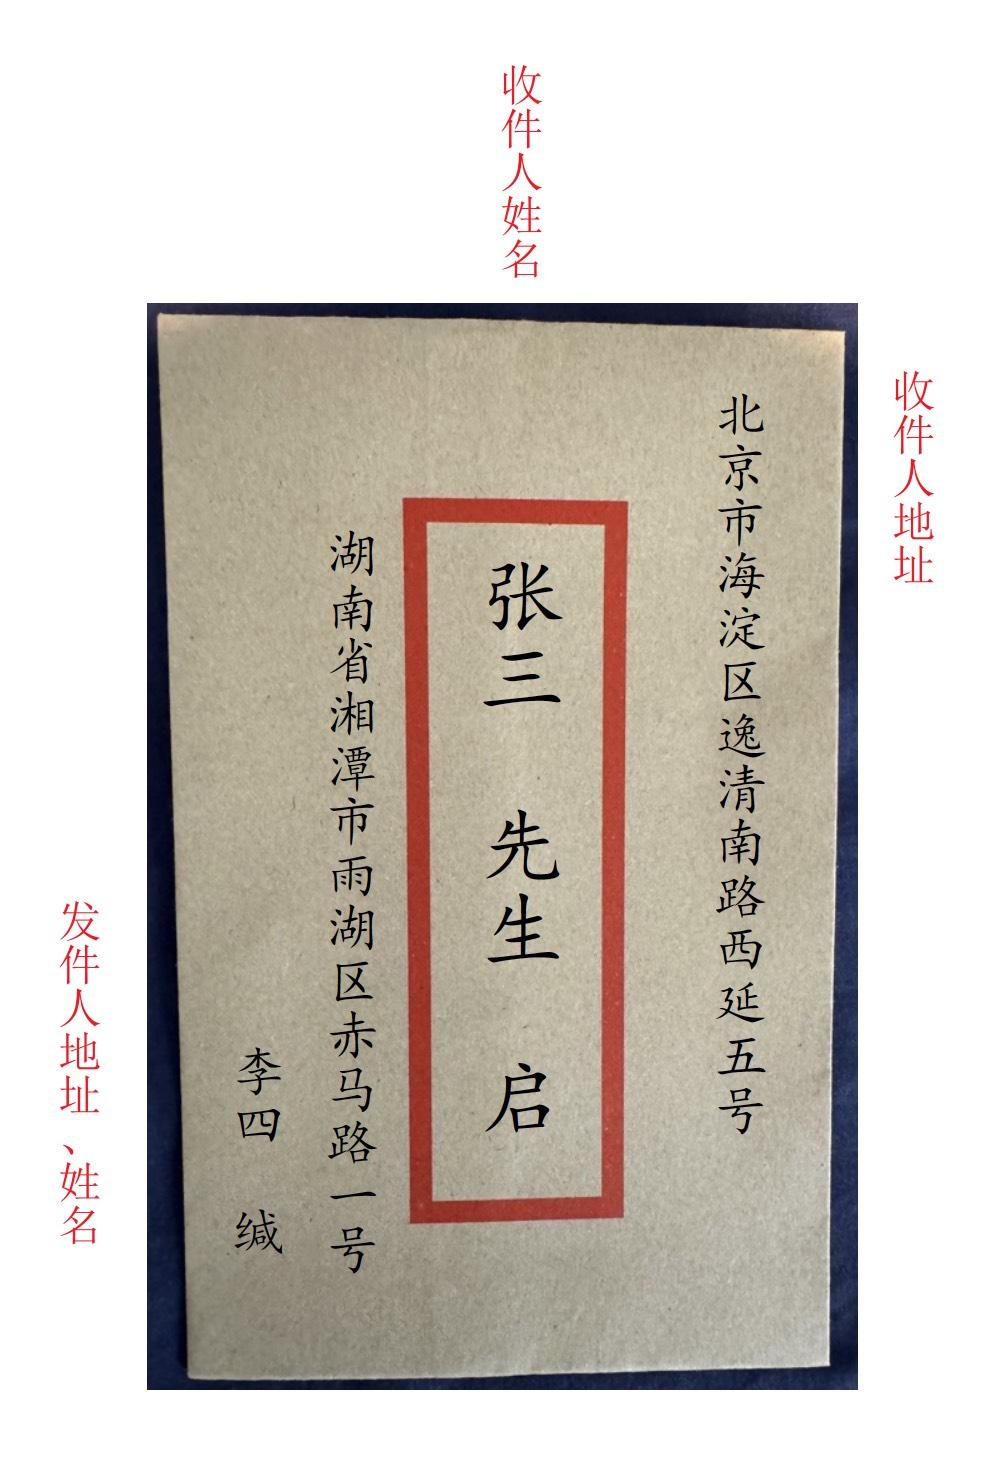 收件人姓名
收件人地址
北京市海淀区逸清南路西延五号
张三 先生 启
湖南省湘潭市雨湖区赤马路一号
李四 缄
发件人地址、姓名